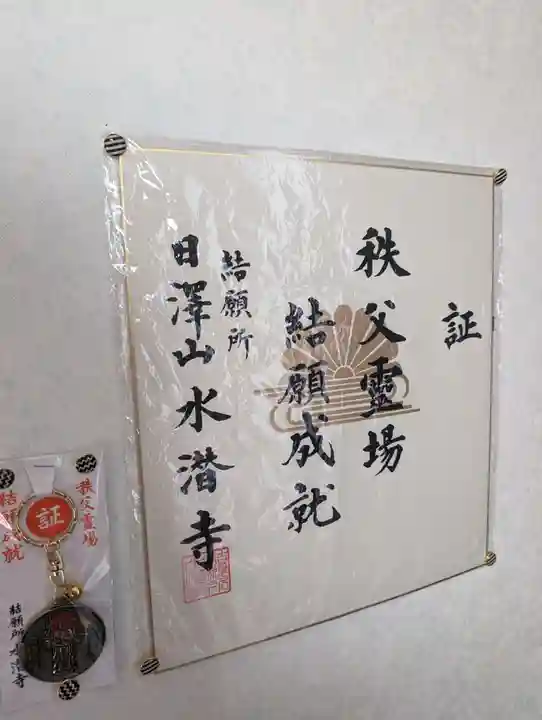 証
秩父靈場
結願成就
結願所
日澤山水潜寺
証
秩父霊場
結願成就
結願所 水潜寺